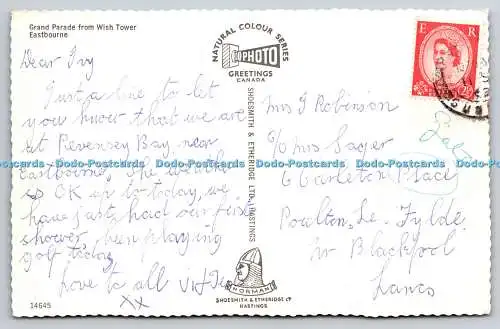 Grand Parade from Wish Tower
Eastbourne
Dear Ivy
Just a line to let
you know that we are
at Pevensey Bay, near
Eastbourne, The weather
is OK up to today, we
have just had our first
shower, been playing
golf today
Love to all
xx
14645
NATURAL COLOUR SERIES
PHOTO
GREETINGS
CANADA
SHOESMITH & ETHERIDGE LTD. HASTINGS
NORMAN
SHOESMITH & ETHERIDGE LTD
HASTINGS
E R
Mrs I Robinson
c/o Mrs Sager
6 Carleton Place
Poulton. Le. Fylde
Nr Blackpool
Lancs
Dodo-Postcards Dodo-Postcards Dodo-Postcards Dodo-Postcards Dodo-Postcards Dodo-Postcards